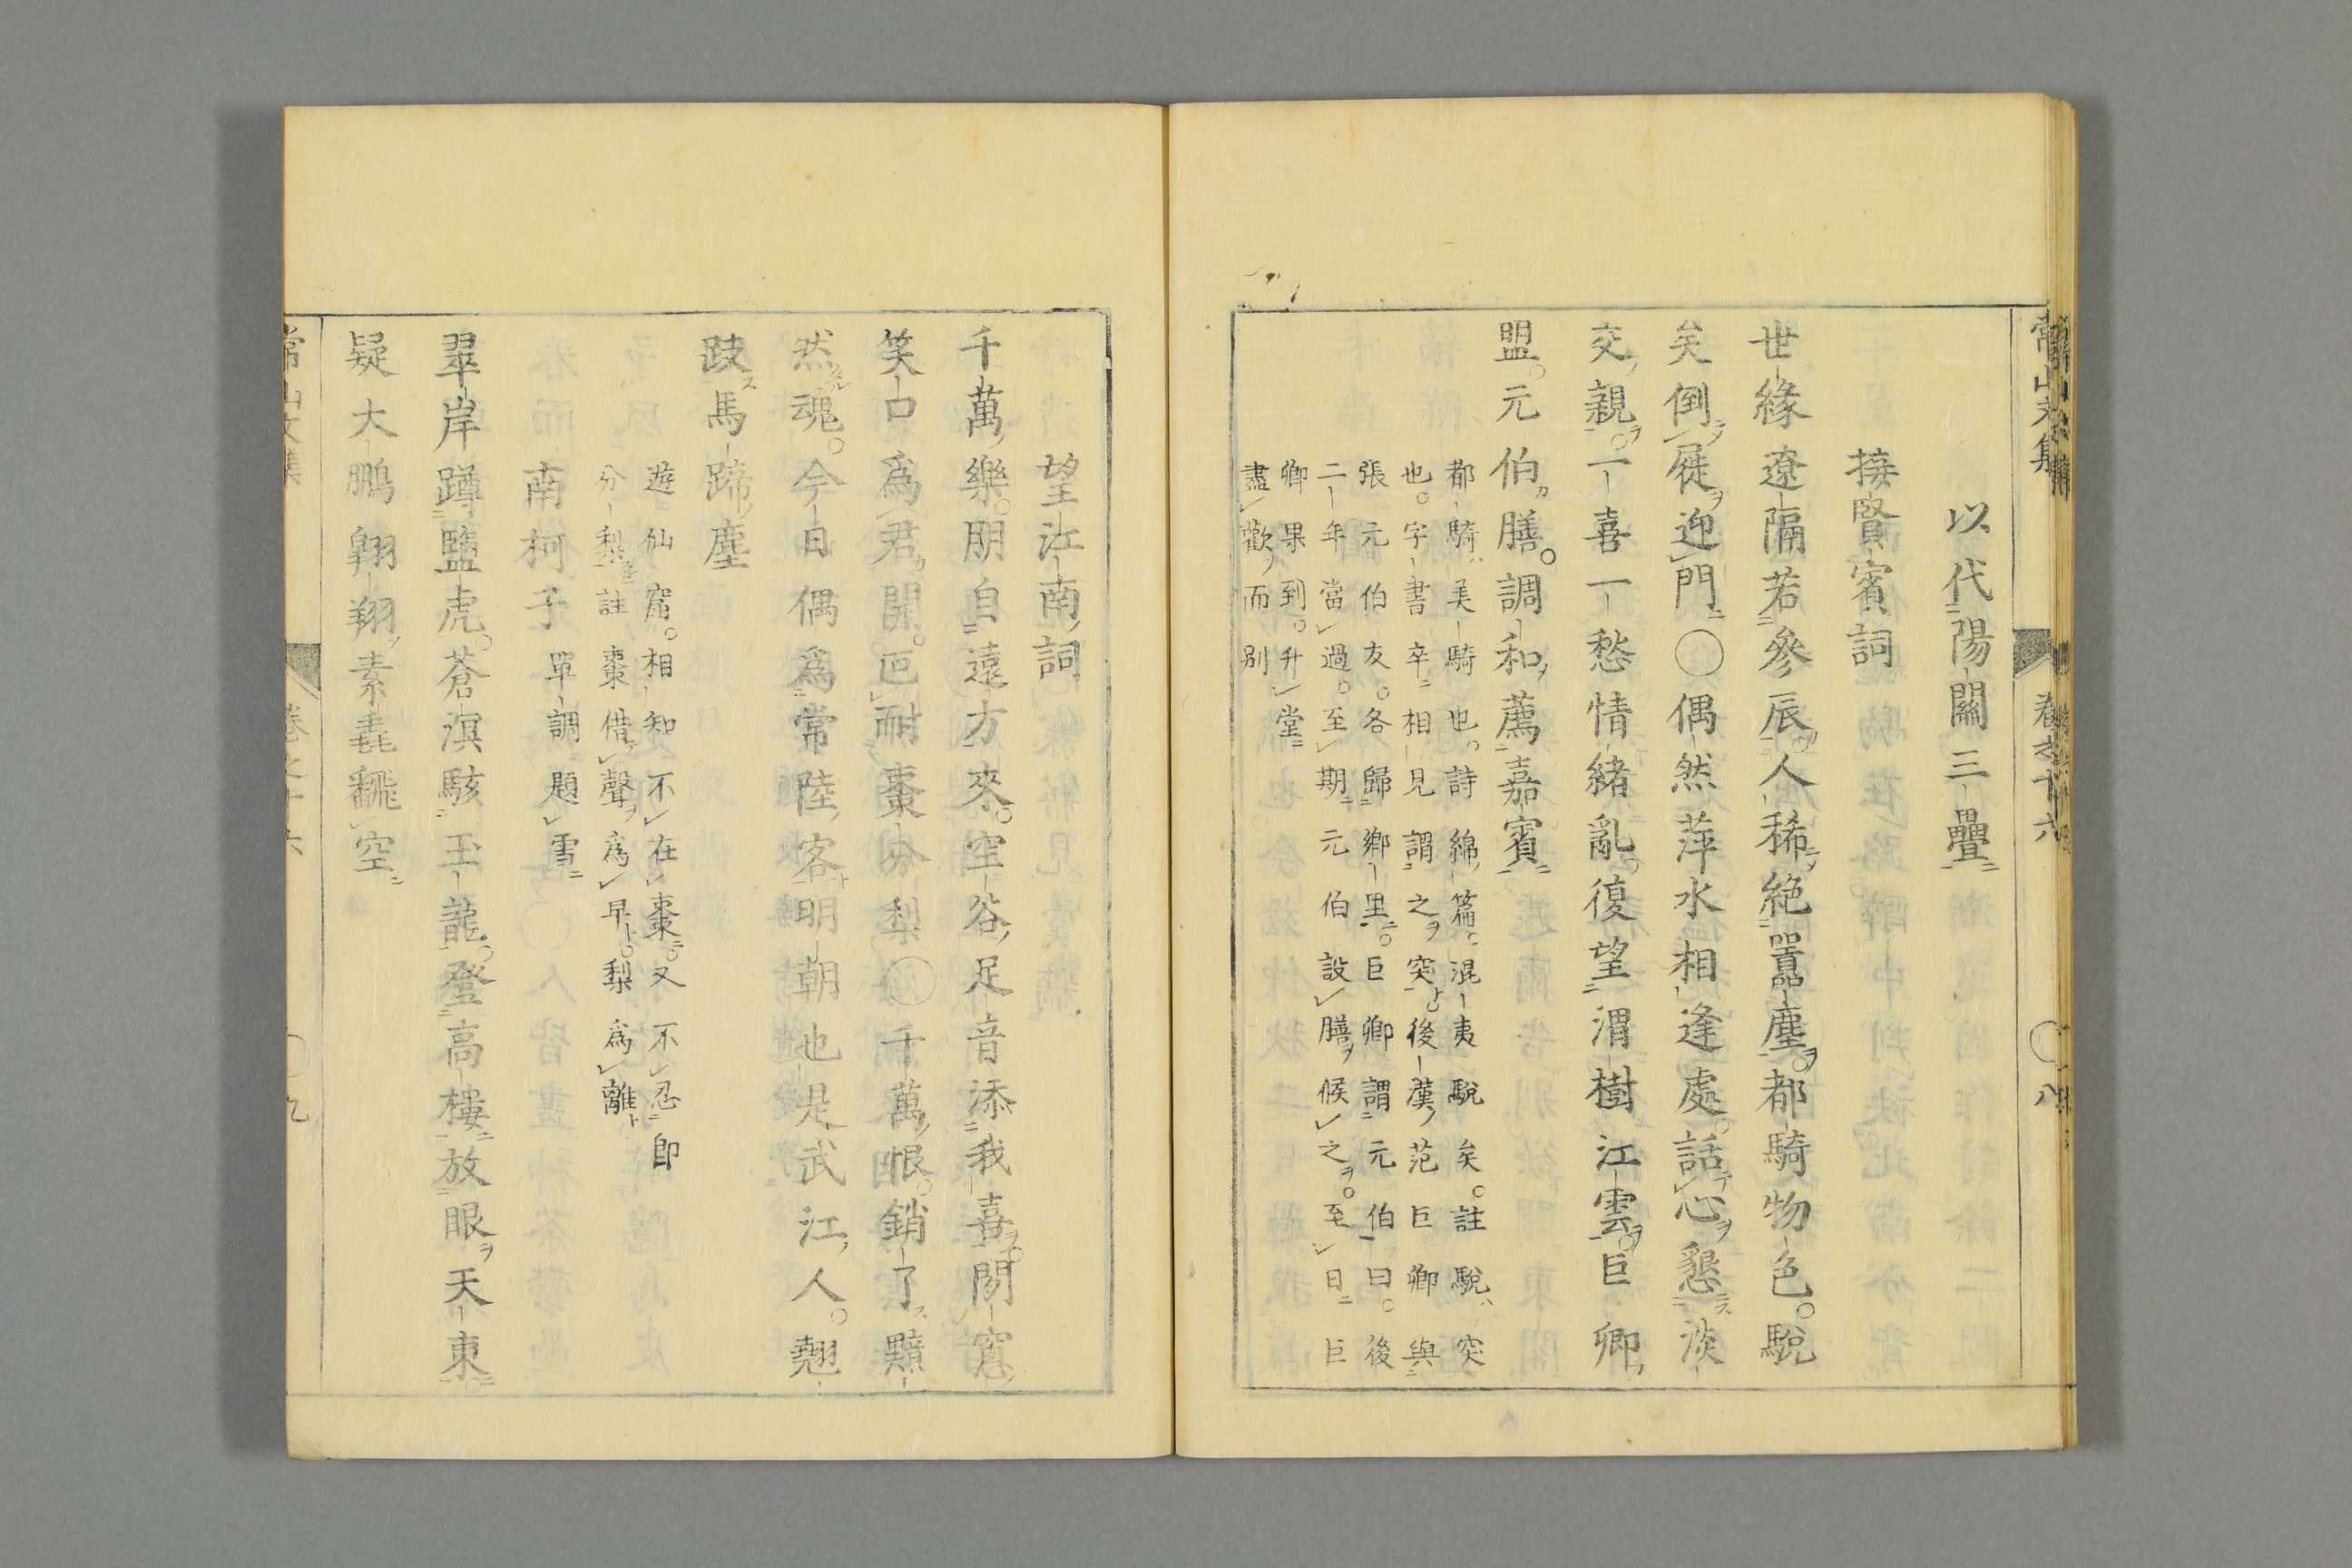 常山文集 卷之十六 〇八
以代陽關三疊
接賢賓詞
世緣遼隔若參辰人稀絶囂塵都騎物色駾
矣倒屣迎門〇偶然萍水相逢處話心懇淡
交親一喜一愁情緒亂復望渭樹江雲巨卿
盟元伯膳調和薦嘉賓
都騎美騎也詩綿篇混夷駾矣註駾突
也字書卒相見謂之突後漢范巨卿與
張元伯友各歸鄉里巨卿謂元伯曰後
二年當過至期元伯設膳候之至日巨
卿果到升堂
盡歡而別
望江南詞
千萬樂朋自遠方來空谷足音添我喜閉窓
笑口爲君開叵耐棗分梨〇千萬恨銷了黯
然魂今日偶爲常陸客明朝也是武江人翹
跂馬蹄塵
遊仙窟相知不在棗又不忍即
分梨註棗借聲爲早梨爲離
南柯子 單調題雪
翠岸蹲鹽虎蒼溟駭玉龍登高樓放眼天東
疑大鵬翱翔素毳飜空
常山文集 卷之十六 〇九